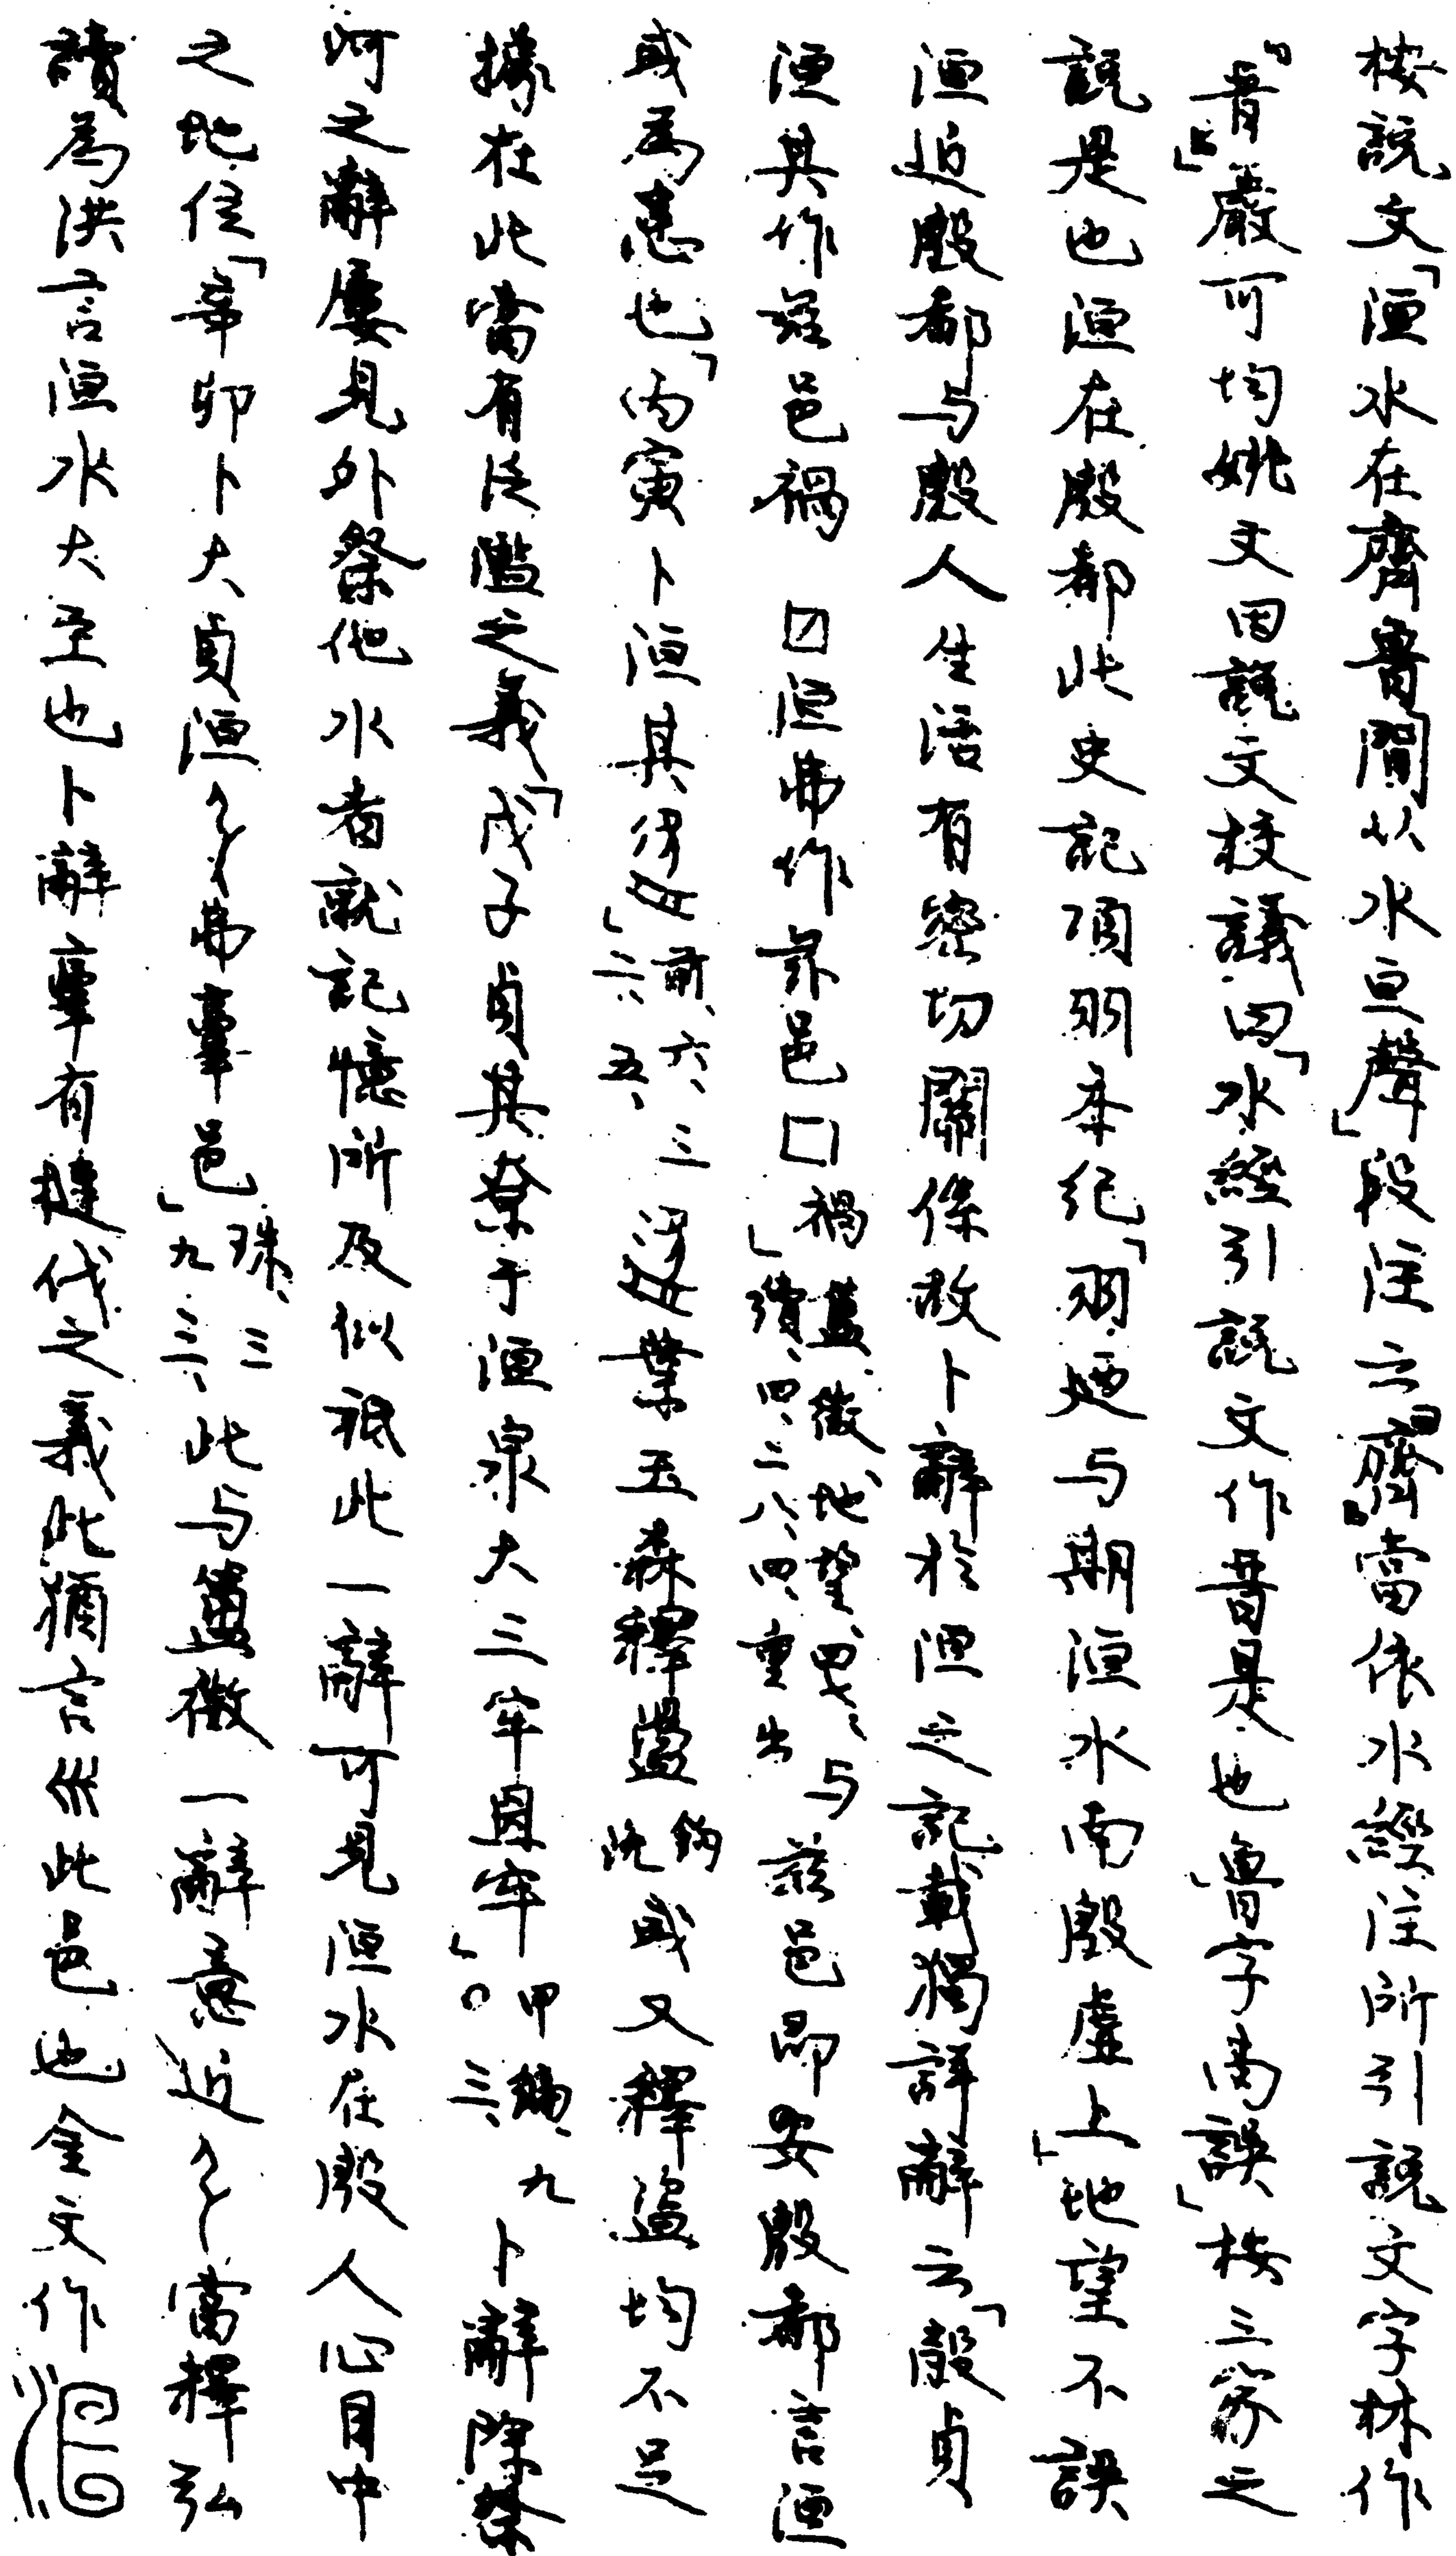 按說文「洹水在齊魯間从水亘聲」段注云『齊』當依水經注所引說文字林作
『晉』嚴可均姚文田說文校議曰「水經引說文作晉是也魯字為誤」按三家之
說是也洹在殷都此史記項羽本紀「羽廼与期洹水南殷虛上」地望不誤
洹近殷都与殷人生活有密切關係故卜辭於洹之記載獨詳辭云「殼貞
洹其作茲邑禍　囗洹弗作茲邑囗禍」簠、徵、地望、四七、与續、四、二八、四、重出 茲邑即安殷都言洹
或為患也「丙寅卜洹其」前、六、三二、五、葉玉森釋盪鈎沈或又釋盜均不足
據在此當有泛濫之義「戊子貞其尞于洹泉大三牢圂牢」甲編、九〇三、卜辭除祭
河之辭屢見外祭他水者就記憶所及似祇此一辭可見洹水在殷人心目中
之地位「辛卯卜大貞洹弘弗𦎫邑」珠、三九三、此与簠徵一辭意近當釋弘
讀為洪言洹水大至也卜辭𦎫有撻伐之義此猶言𡿧此邑也金文作